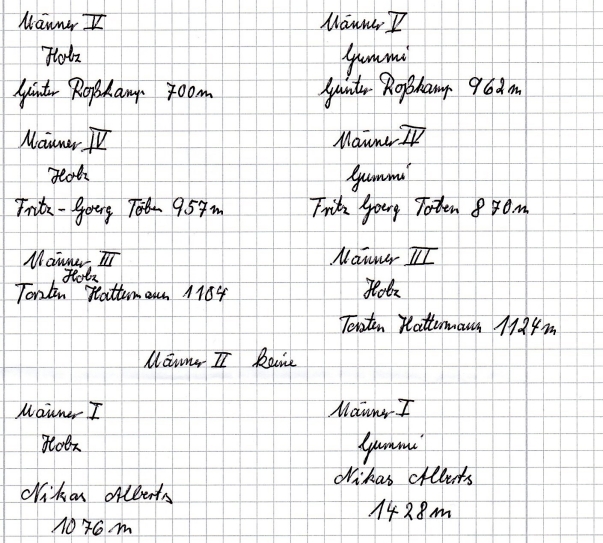 Männer V
Holz
Günter Roßkamp 700m
Männer V
Gummi
Günter Roßkamp 962m
Männer IV
Holz
Fritz-Goerg Töben 957m
Männer IV
Gummi
Fritz Goerg Töben 870m
Männer III
Holz
Torsten Hattermann 1104
Männer III
Holz
Torsten Hattermann 1124m
Männer II keine
Männer I
Holz
Nikas Alberts
1076m
Männer I
Gummi
Nikas Alberts
1428m